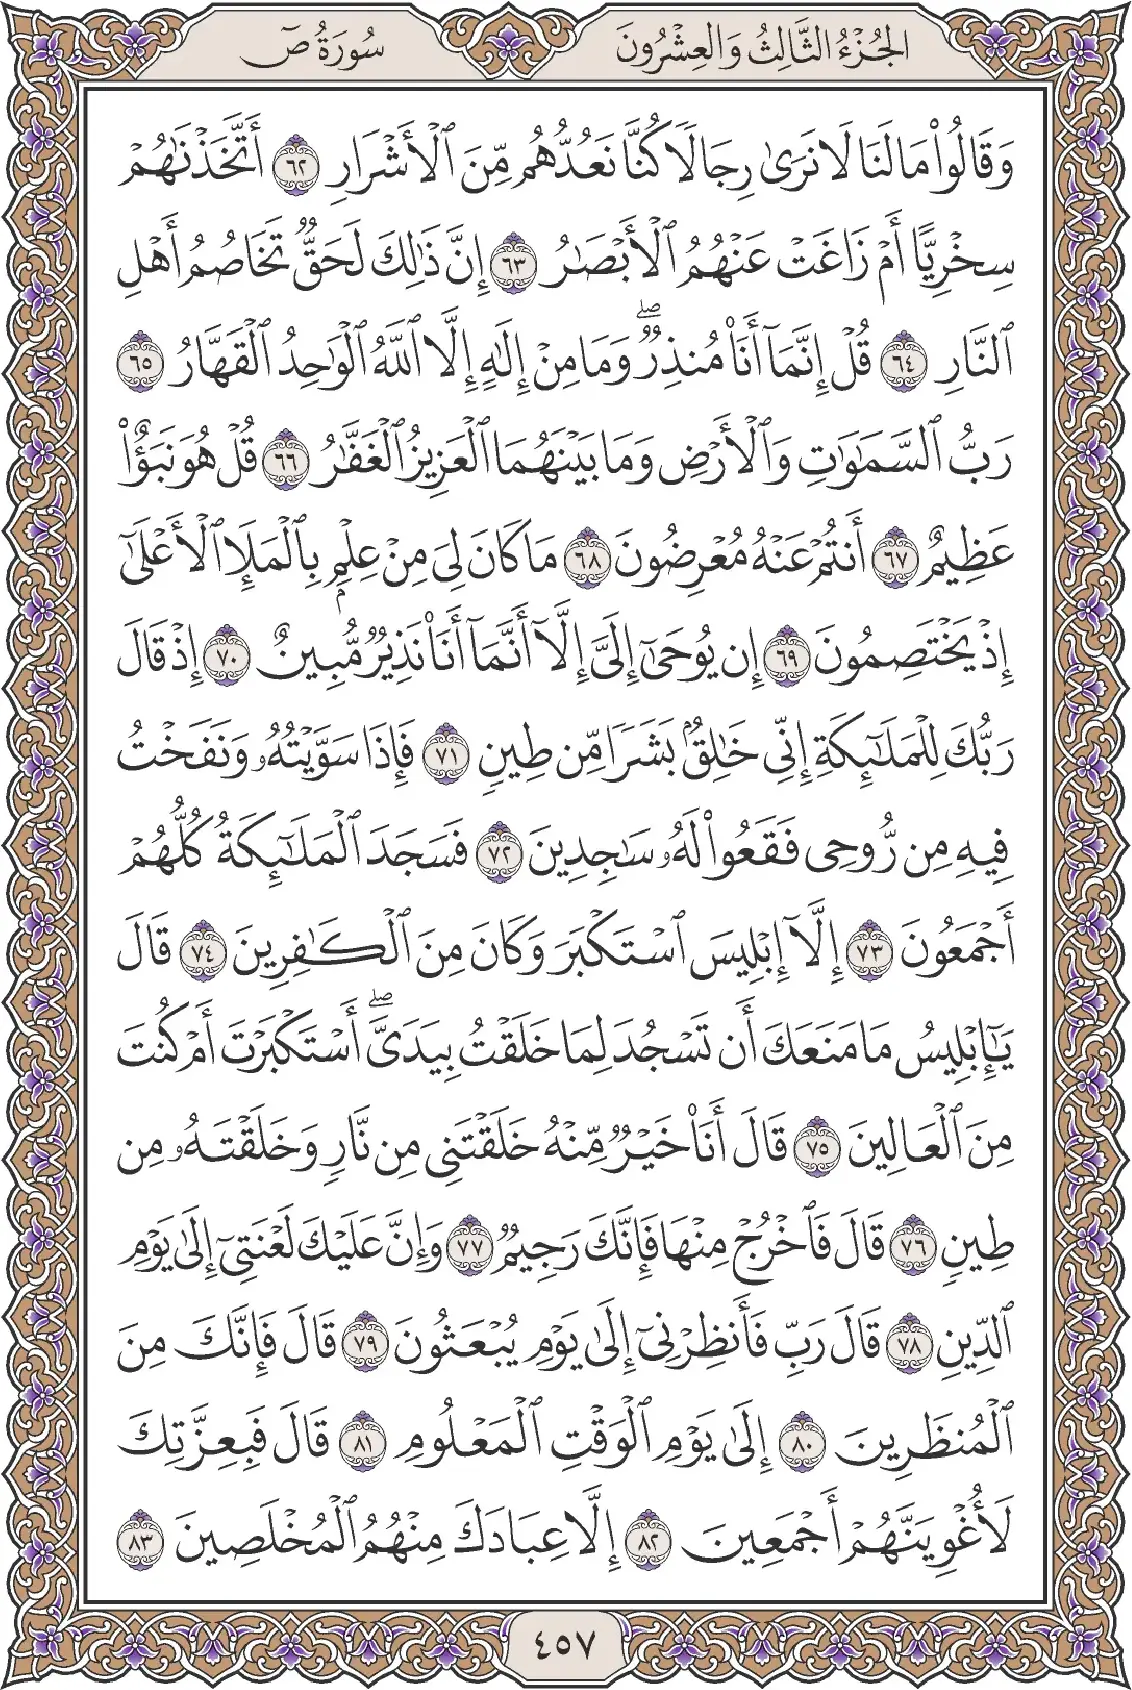 الجزء الثالث والعشرون
سورة ص
وَقَالُوا۟ مَا لَنَا لَا نَرَىٰ رِجَالًا كُنَّا نَعُدُّهُم مِّنَ ٱلْأَشْرَارِ ٦٢ أَتَّخَذْنَـٰهُمْ
سِخْرِيًّا أَمْ زَاغَتْ عَنْهُمُ ٱلْأَبْصَـٰرُ ٦٣ إِنَّ ذَٰلِكَ لَحَقٌّ تَخَاصُمُ أَهْلِ
ٱلنَّارِ ٦٤ قُلْ إِنَّمَآ أَنَا۠ مُنذِرٌ ۖ وَمَا مِنْ إِلَـٰهٍ إِلَّا ٱللَّهُ ٱلْوَٰحِدُ ٱلْقَهَّارُ ٦٥
رَبُّ ٱلسَّمَـٰوَٰتِ وَٱلْأَرْضِ وَمَا بَيْنَهُمَا ٱلْعَزِيزُ ٱلْغَفَّـٰرُ ٦٦ قُلْ هُوَ نَبَؤٌا۟
عَظِيمٌ ٦٧ أَنتُمْ عَنْهُ مُعْرِضُونَ ٦٨ مَا كَانَ لِىَ مِنْ عِلْمٍۭ بِٱلْمَلَإِ ٱلْأَعْلَىٰٓ
إِذْ يَخْتَصِمُونَ ٦٩ إِن يُوحَىٰٓ إِلَىَّ إِلَّآ أَنَّمَآ أَنَا۠ نَذِيرٌ مُّبِينٌ ٧٠ إِذْ قَالَ
رَبُّكَ لِلْمَلَـٰٓئِكَةِ إِنِّى خَـٰلِقٌۢ بَشَرًا مِّن طِينٍ ٧١ فَإِذَا سَوَّيْتُهُۥ وَنَفَخْتُ
فِيهِ مِن رُّوحِى فَقَعُوا۟ لَهُۥ سَـٰجِدِينَ ٧٢ فَسَجَدَ ٱلْمَلَـٰٓئِكَةُ كُلُّهُمْ
أَجْمَعُونَ ٧٣ إِلَّآ إِبْلِيسَ ٱسْتَكْبَرَ وَكَانَ مِنَ ٱلْكَـٰفِرِينَ ٧٤ قَالَ
يَـٰٓإِبْلِيسُ مَا مَنَعَكَ أَن تَسْجُدَ لِمَا خَلَقْتُ بِيَدَىَّ ۖ أَسْتَكْبَرْتَ أَمْ كُنتَ
مِنَ ٱلْعَالِينَ ٧٥ قَالَ أَنَا۠ خَيْرٌ مِّنْهُ خَلَقْتَنِى مِن نَّارٍ وَخَلَقْتَهُۥ مِن
طِينٍ ٧٦ قَالَ فَٱخْرُجْ مِنْهَا فَإِنَّكَ رَجِيمٌ ٧٧ وَإِنَّ عَلَيْكَ لَعْنَتِىٓ إِلَىٰ يَوْمِ
ٱلدِّينِ ٧٨ قَالَ رَبِّ فَأَنظِرْنِىٓ إِلَىٰ يَوْمِ يُبْعَثُونَ ٧٩ قَالَ فَإِنَّكَ مِنَ
ٱلْمُنظَرِينَ ٨٠ إِلَىٰ يَوْمِ ٱلْوَقْتِ ٱلْمَعْلُومِ ٨١ قَالَ فَبِعِزَّتِكَ
لَأُغْوِيَنَّهُمْ أَجْمَعِينَ ٨٢ إِلَّا عِبَادَكَ مِنْهُمُ ٱلْمُخْلَصِينَ ٨٣
٤٥٧